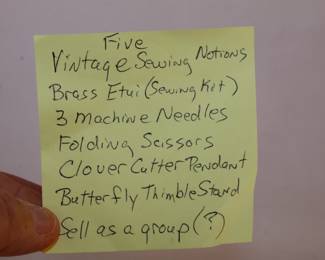 Five
Vintage Sewing Notions
Brass Etui (Sewing Kit)
3 Machine Needles
Folding Scissors
Clover Cutter Pendant
Butterfly Thimble Stand
Sell as a group (?)